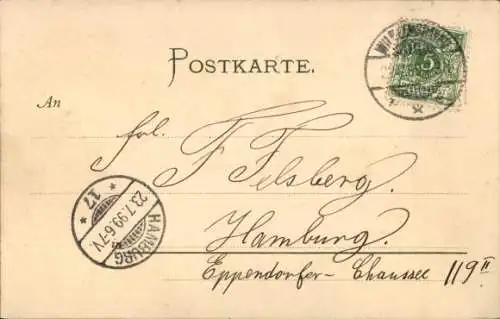 POSTKARTE.
5
An
frl. F Felsberg.
Hamburg.
Eppendorfer-Chaussee 119 II
HAMBURG
23.7.99.6-7V.
* 17 *